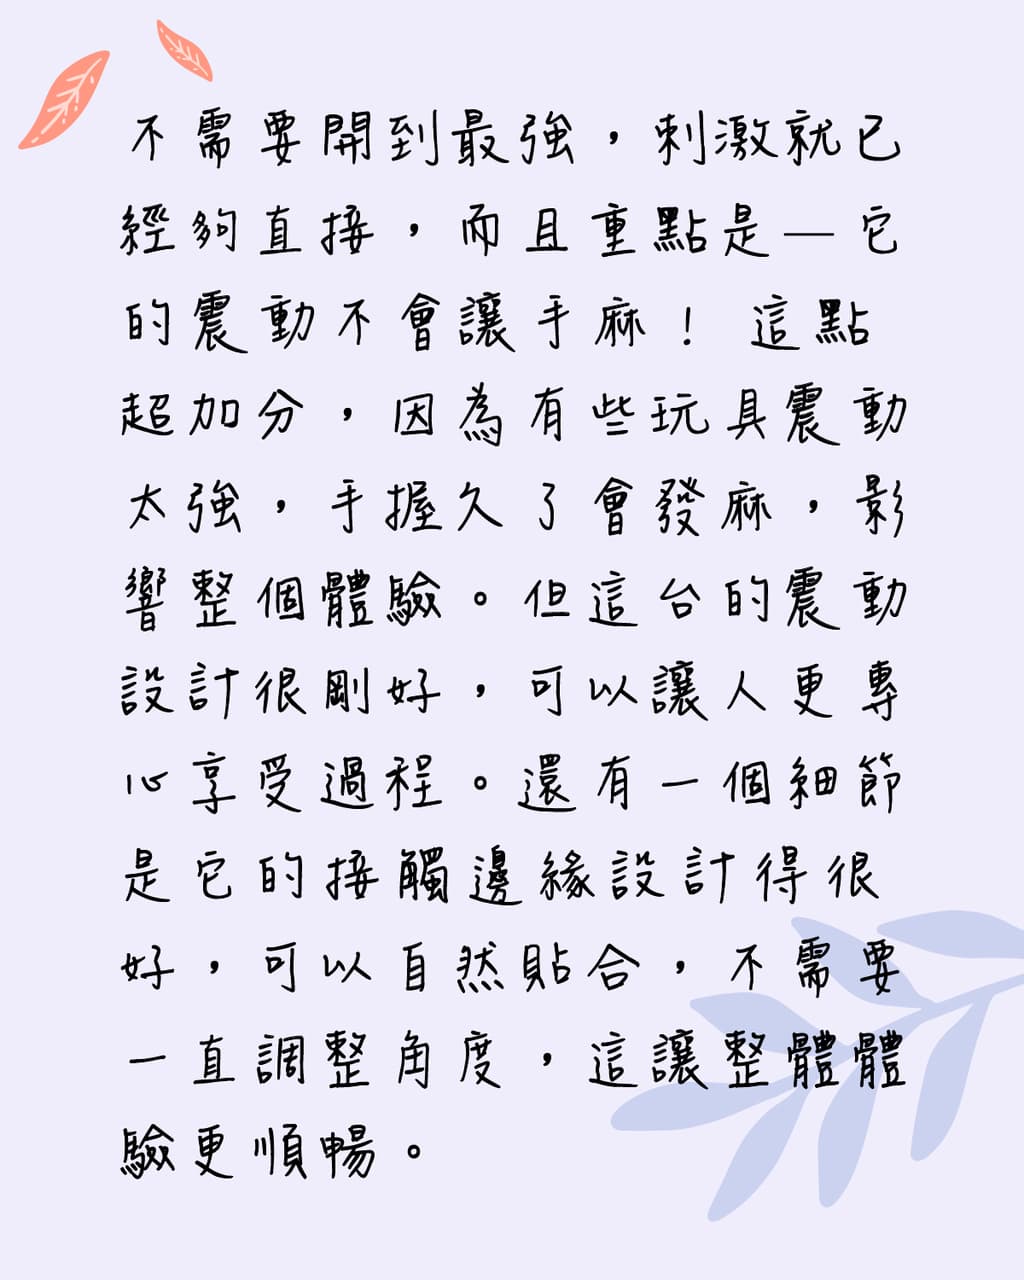 不需要開到最強，刺激就已
經夠直接，而且重點是—它
的震動不會讓手麻！ 這點
超加分，因為有些玩具震動
太強，手握久了會發麻，影
響整個體驗。但這台的震動
設計很剛好，可以讓人更專
心享受過程。還有一個細節
是它的接觸邊緣設計得很
好，可以自然貼合，不需要
一直調整角度，這讓整體體
驗更順暢。